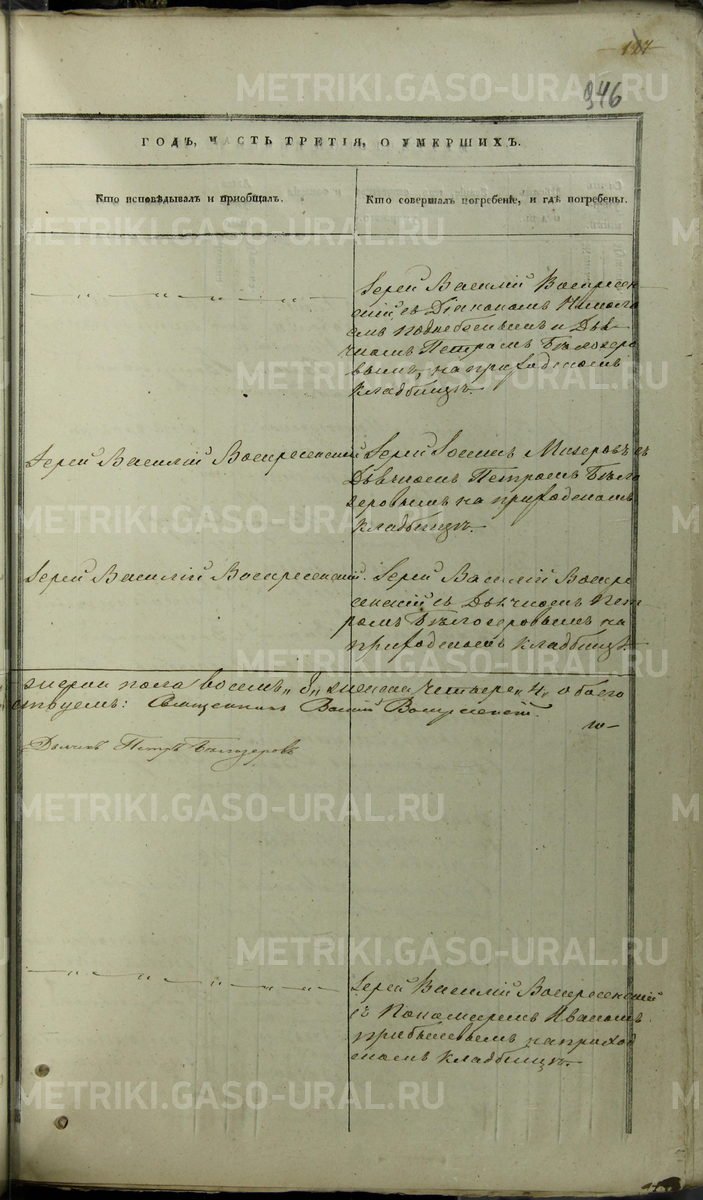 127
346
ГОДЪ, ЧАСТЬ ТРЕТІЯ, О УМЕРШИХЪ.
Кто исповѣдывалъ и приобщалъ.
Кто совершалъ погребеніе, и гдѣ погребены.
Іерей Василій Воскресен-
скій съ Діакономъ
и Дья-
чкомъ Петромъ Бѣлозеро
вымъ, на приходскомъ
кладбищѣ.
Іерей Василій Воскресенскій
Іерей Іоаннъ Мизеровъ съ
Дьячкомъ Петромъ Бѣло
зеровымъ на приходскомъ
кладбищѣ.
Іерей Василій Воскресенскій.
Іерей Василій Воскре
сенскій съ Дьячкомъ Пет
ромъ Бѣлозеровымъ на
приходскомъ кладбищѣ.
пола восемь „8„ женска четыре „4„ обоего
Священникъ Василій Воскресенскій.
Дьячекъ Петръ Бѣлозеровъ
Іерей Василій Воскресенскій
съ Пономаремъ Иваномъ
Прибылевымъ на приход
скомъ кладбищѣ.
METRIKI.GASO-URAL.RU